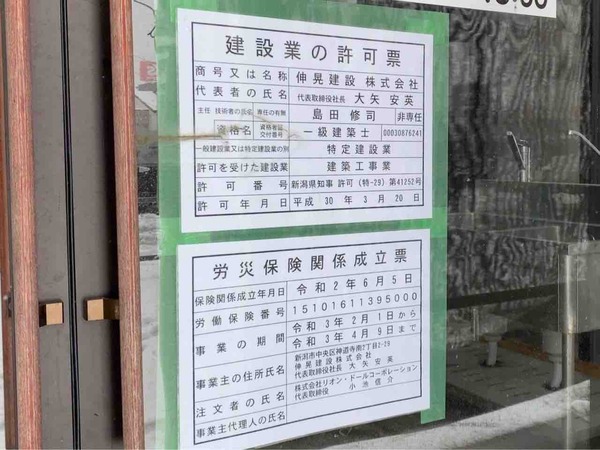 建設業の許可票
商号又は名称 伸晃建設 株式会社
代表者の氏名 代表取締役社長 大矢 安英
主任 技術者の氏名 専任の有無 島田 修司 非専任
資格名 資格者証交付番号 一級建築士 00030876241
一般建設業又は特定建設業の別 特定建設業
許可を受けた建設業 建築工事業
許可番号 新潟県知事 許可 (特-29) 第41252号
許可年月日 平成 30年 3月 20日
労災保険関係成立票
保険関係成立年月日 令和2年6月5日
労働保険番号 15101611395000
事業の期間 令和3年2月1日から
令和3年4月9日まで
事業主の住所氏名 新潟市中央区神道寺南2丁目2-29
伸晃建設株式会社
代表取締役社長 大矢 安英
注文者の氏名 株式会社リオン・ドールコーポレーション
代表取締役 小池 信介
事業主代理人の氏名